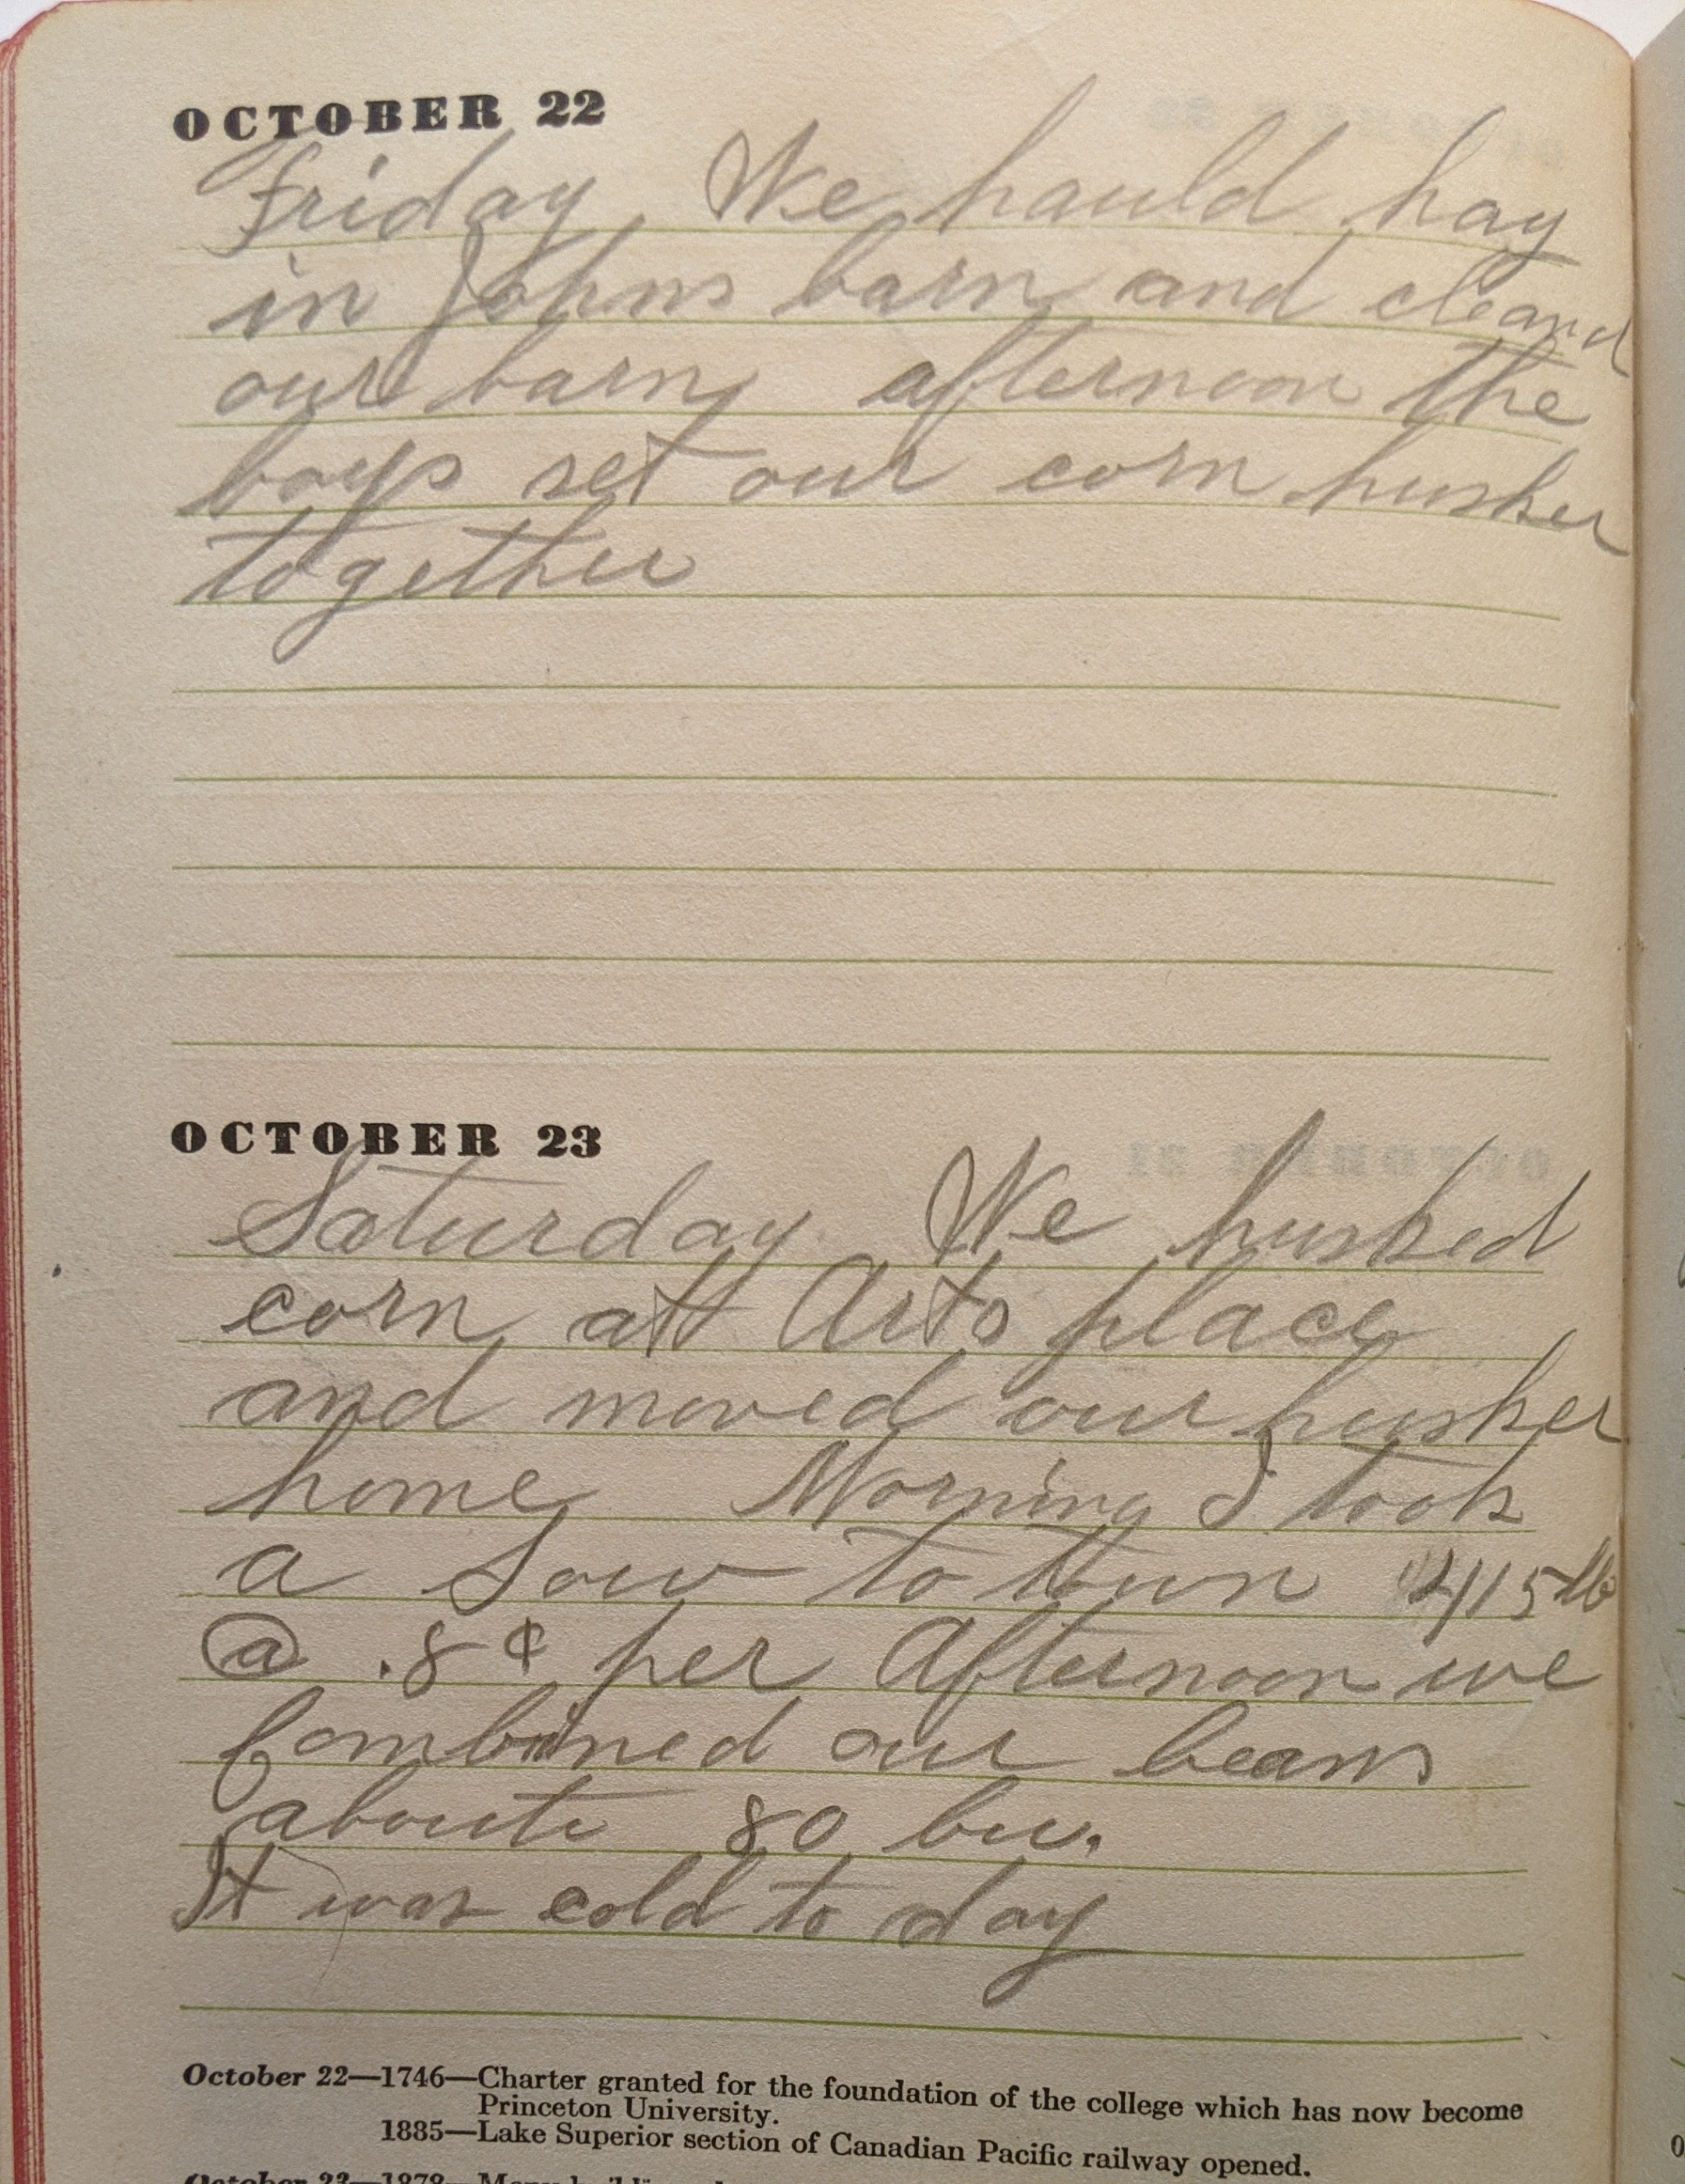 OCTOBER 22
Friday. We hauld hay
in Johns barn and cleand
our barn afternoon the
boys set our corn husker
together
OCTOBER 23
Saturday We husked
corn att Arts place
and moved our husker
home Morning I took
a Sow to town 415 lb
@ .8 ¢ per Afternoon we
Combined our beans
about 80 bu.
It was cold to day
October 22—1746—Charter granted for the foundation of the college which has now become
Princeton University.
1885—Lake Superior section of Canadian Pacific railway opened.
October 23—1878—Many